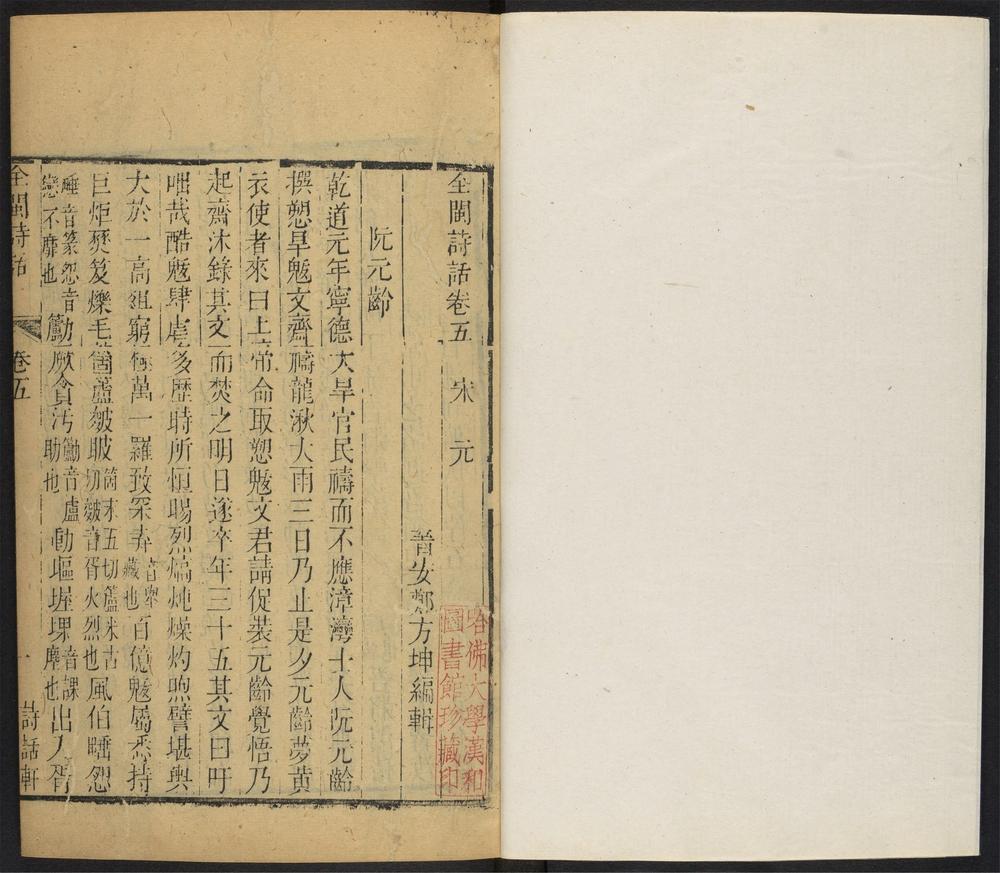 全閩詩話卷五 宋 元
晉安鄭方坤編輯
阮元齡
乾道元年寧德大旱官民禱而不應漳灣士人阮元齡
撰愬旱魃文齋禱龍湫大雨三日乃止是夕元齡夢黃
衣使者來曰上帝命取愬魃文君請促裝元齡覺悟乃
起齋沐錄其文而焚之明日遂卒年三十五其文曰吁
咄哉酷魃肆虐多歷時所恒暘烈熇炖燥灼煦譬堪輿
大於一高俎窮極萬一羅致深弆音舉藏也百億魃屬悉持
巨炬燹笈爍毛箇蘆皴䀝箇末五切蘆米古切皴音胥火烈也風伯䁓怨
䁓音篆怨音戀不靡也籚厥貪汚籚音盧助也動堀堁堁音課塵也出入胥
全閩詩話 卷五 一 詩話軒
哈佛大學漢和圖書館珍藏印